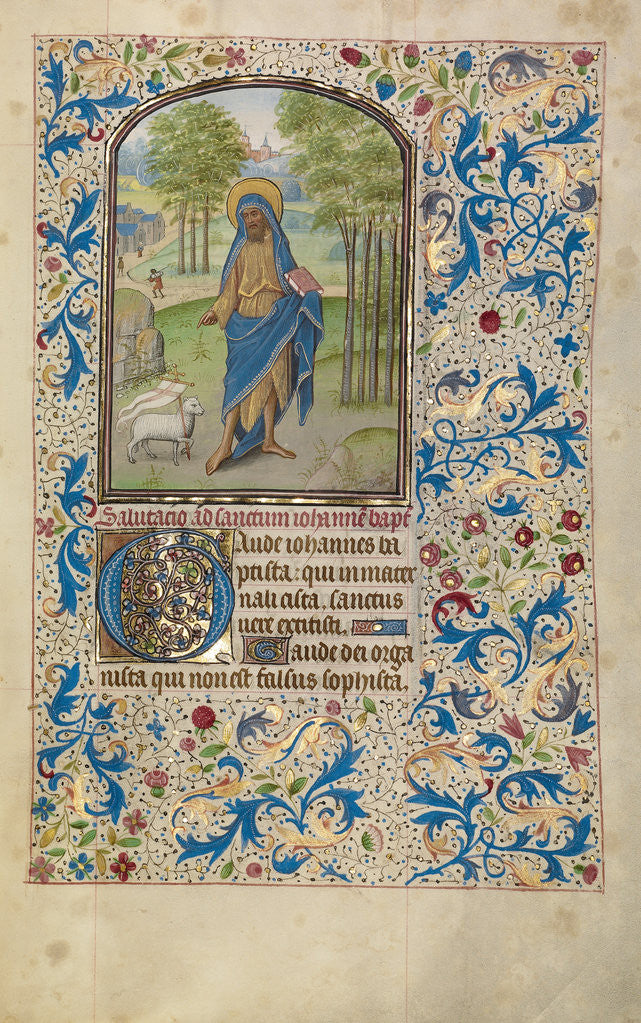 Salutacio ad sanctum iohannē bapt̄
Gaude iohannes ba
ptista: qui in mater
nali cista, sanctus
uere extitisti.
Gaude dei orga
nista qui non est falsus sophista,